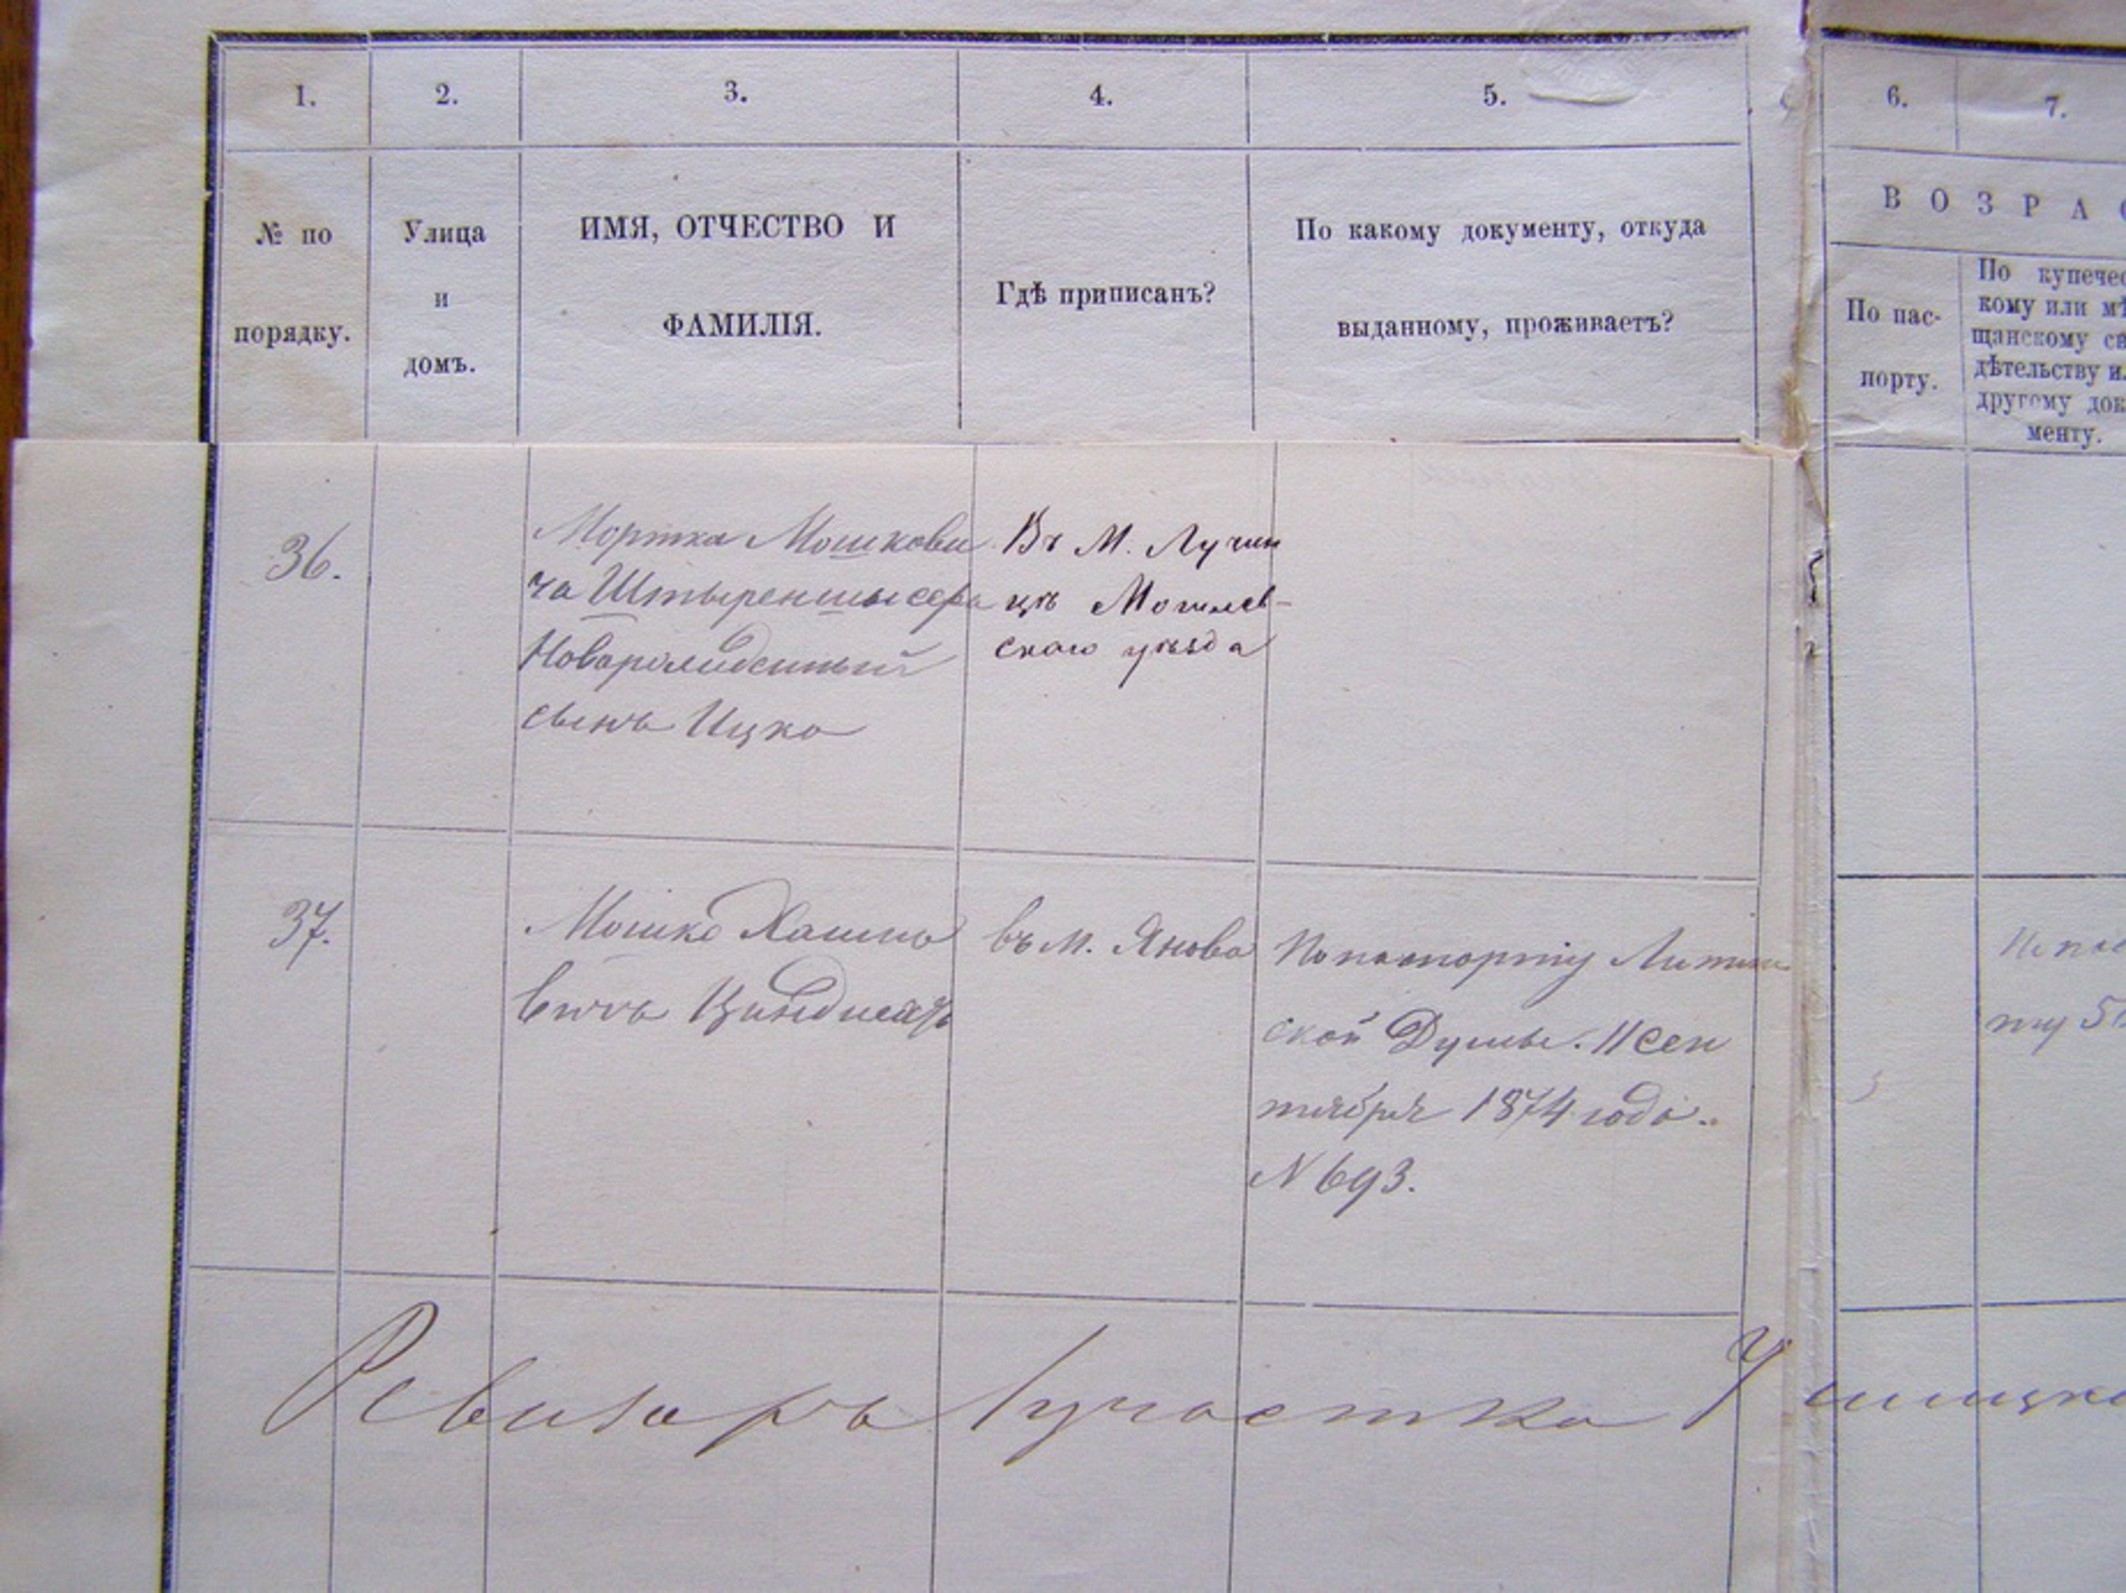 1. 2. 3. 4. 5. 6. 7.
№ по
порядку.
Улица
и
домъ.
ИМЯ, ОТЧЕСТВО И
ФАМИЛІЯ.
Гдѣ приписанъ?
По какому документу, откуда
выданному, проживаетъ?
ВОЗРА
По пас-
порту.
По купечес
кому или мѣ
щанскому св
дѣтельству и
другому док
менту.
36.
Мортка Мошкови
ча Штыреншысера
Новарожденный
сынъ Ицко
Въ М. Лучин
цѣ Могилев-
скаго уѣзда
37.
Мошко Хаимо
вичъ
въ м. Янова
По паспорту Литин
ской Думы. 11 Сен
тября 1874 года.
N 693.
По пас
ту 5
Ревизоръ 1 участка Ушицко